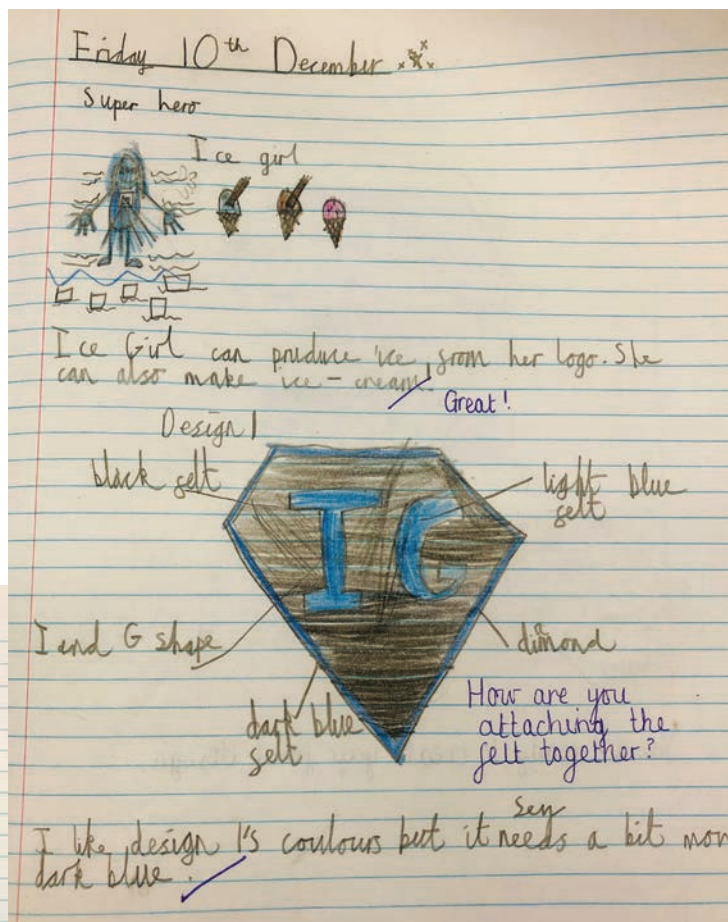 Friday 10th December
Super hero
Ice girl
Ice Girl can produce ice from her logo. She
can also make ice-cream!
Great!
Design 1
black felt
light blue
felt
I G
I and G shape
dimond
dark blue
felt
How are you
attaching the
felt together?
sew
I like design 1's coulours but it needs a bit
dark blue.